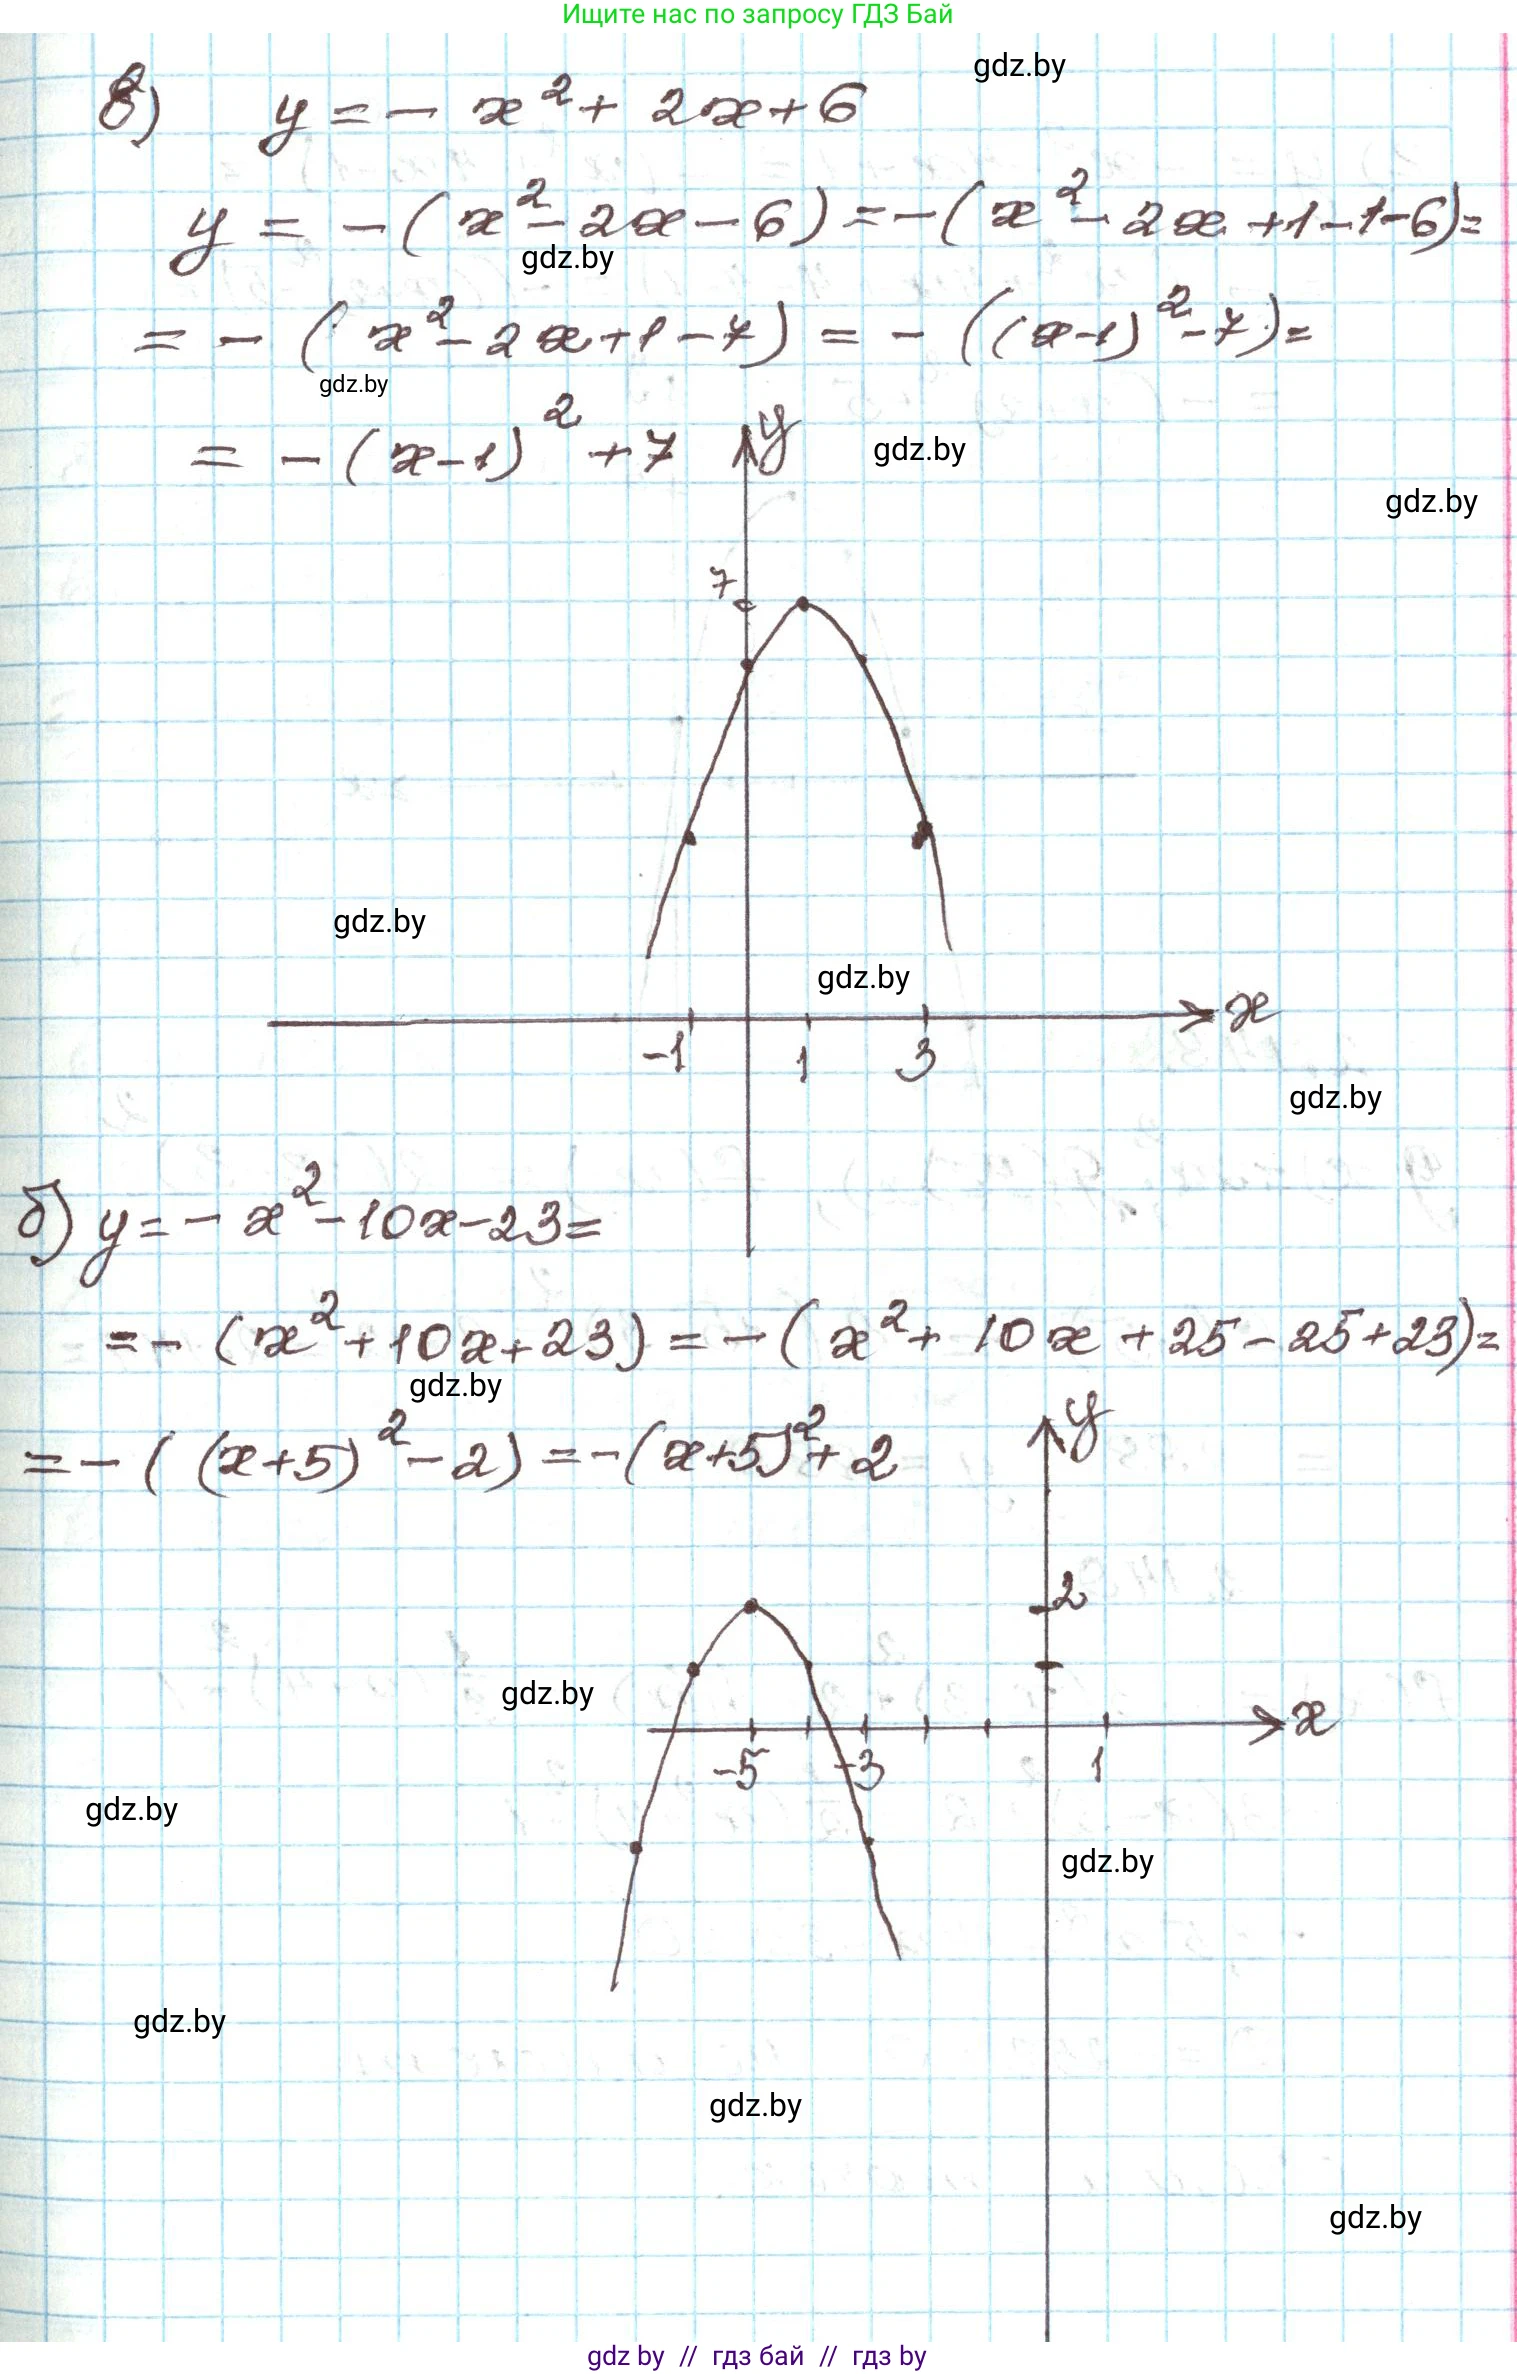 Ищите нас по запросу ГДЗ Бай
gdz.by
в) y = - x² + 2x + 6
y = - (x² - 2x - 6) = - (x² - 2x + 1 - 1 - 6) =
gdz.by
= - (x² - 2x + 1 - 7) = - ((x-1)² - 7) =
gdz.by
= - (x-1)² + 7
y
gdz.by
gdz.by
7
gdz.by
gdz.by
x
-1 1 3
gdz.by
б) y = - x² - 10x - 23 =
= - (x² + 10x + 23) = - (x² + 10x + 25 - 25 + 23) =
gdz.by
y
= - ((x+5)² - 2) = - (x+5)² + 2
2
gdz.by
x
-5 -3 1
gdz.by
gdz.by
gdz.by
gdz.by
gdz.by
gdz by // гдз бай // гдз by